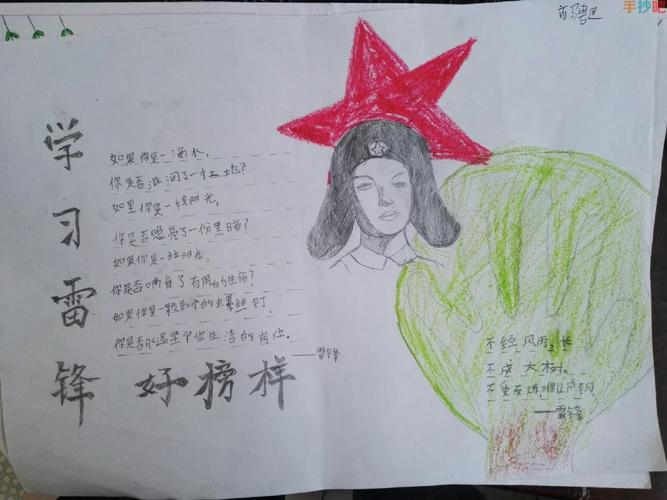 手抄吧
学
习
雷
锋 好榜样
如果你是一滴水，
你是否滋润了一寸土地？
如果你是一线阳光，
你是否照亮了一份黑暗？
如果你是一粒
你是否哺育了有用的生命？
如果你是一颗最小的螺丝钉，
你是否永远坚守你生活的岗位。
——雷锋
不经风雨，长
不成大树。
不受百炼，难以成钢
——雷锋